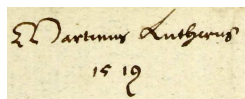 Martinus Lutherus
1519